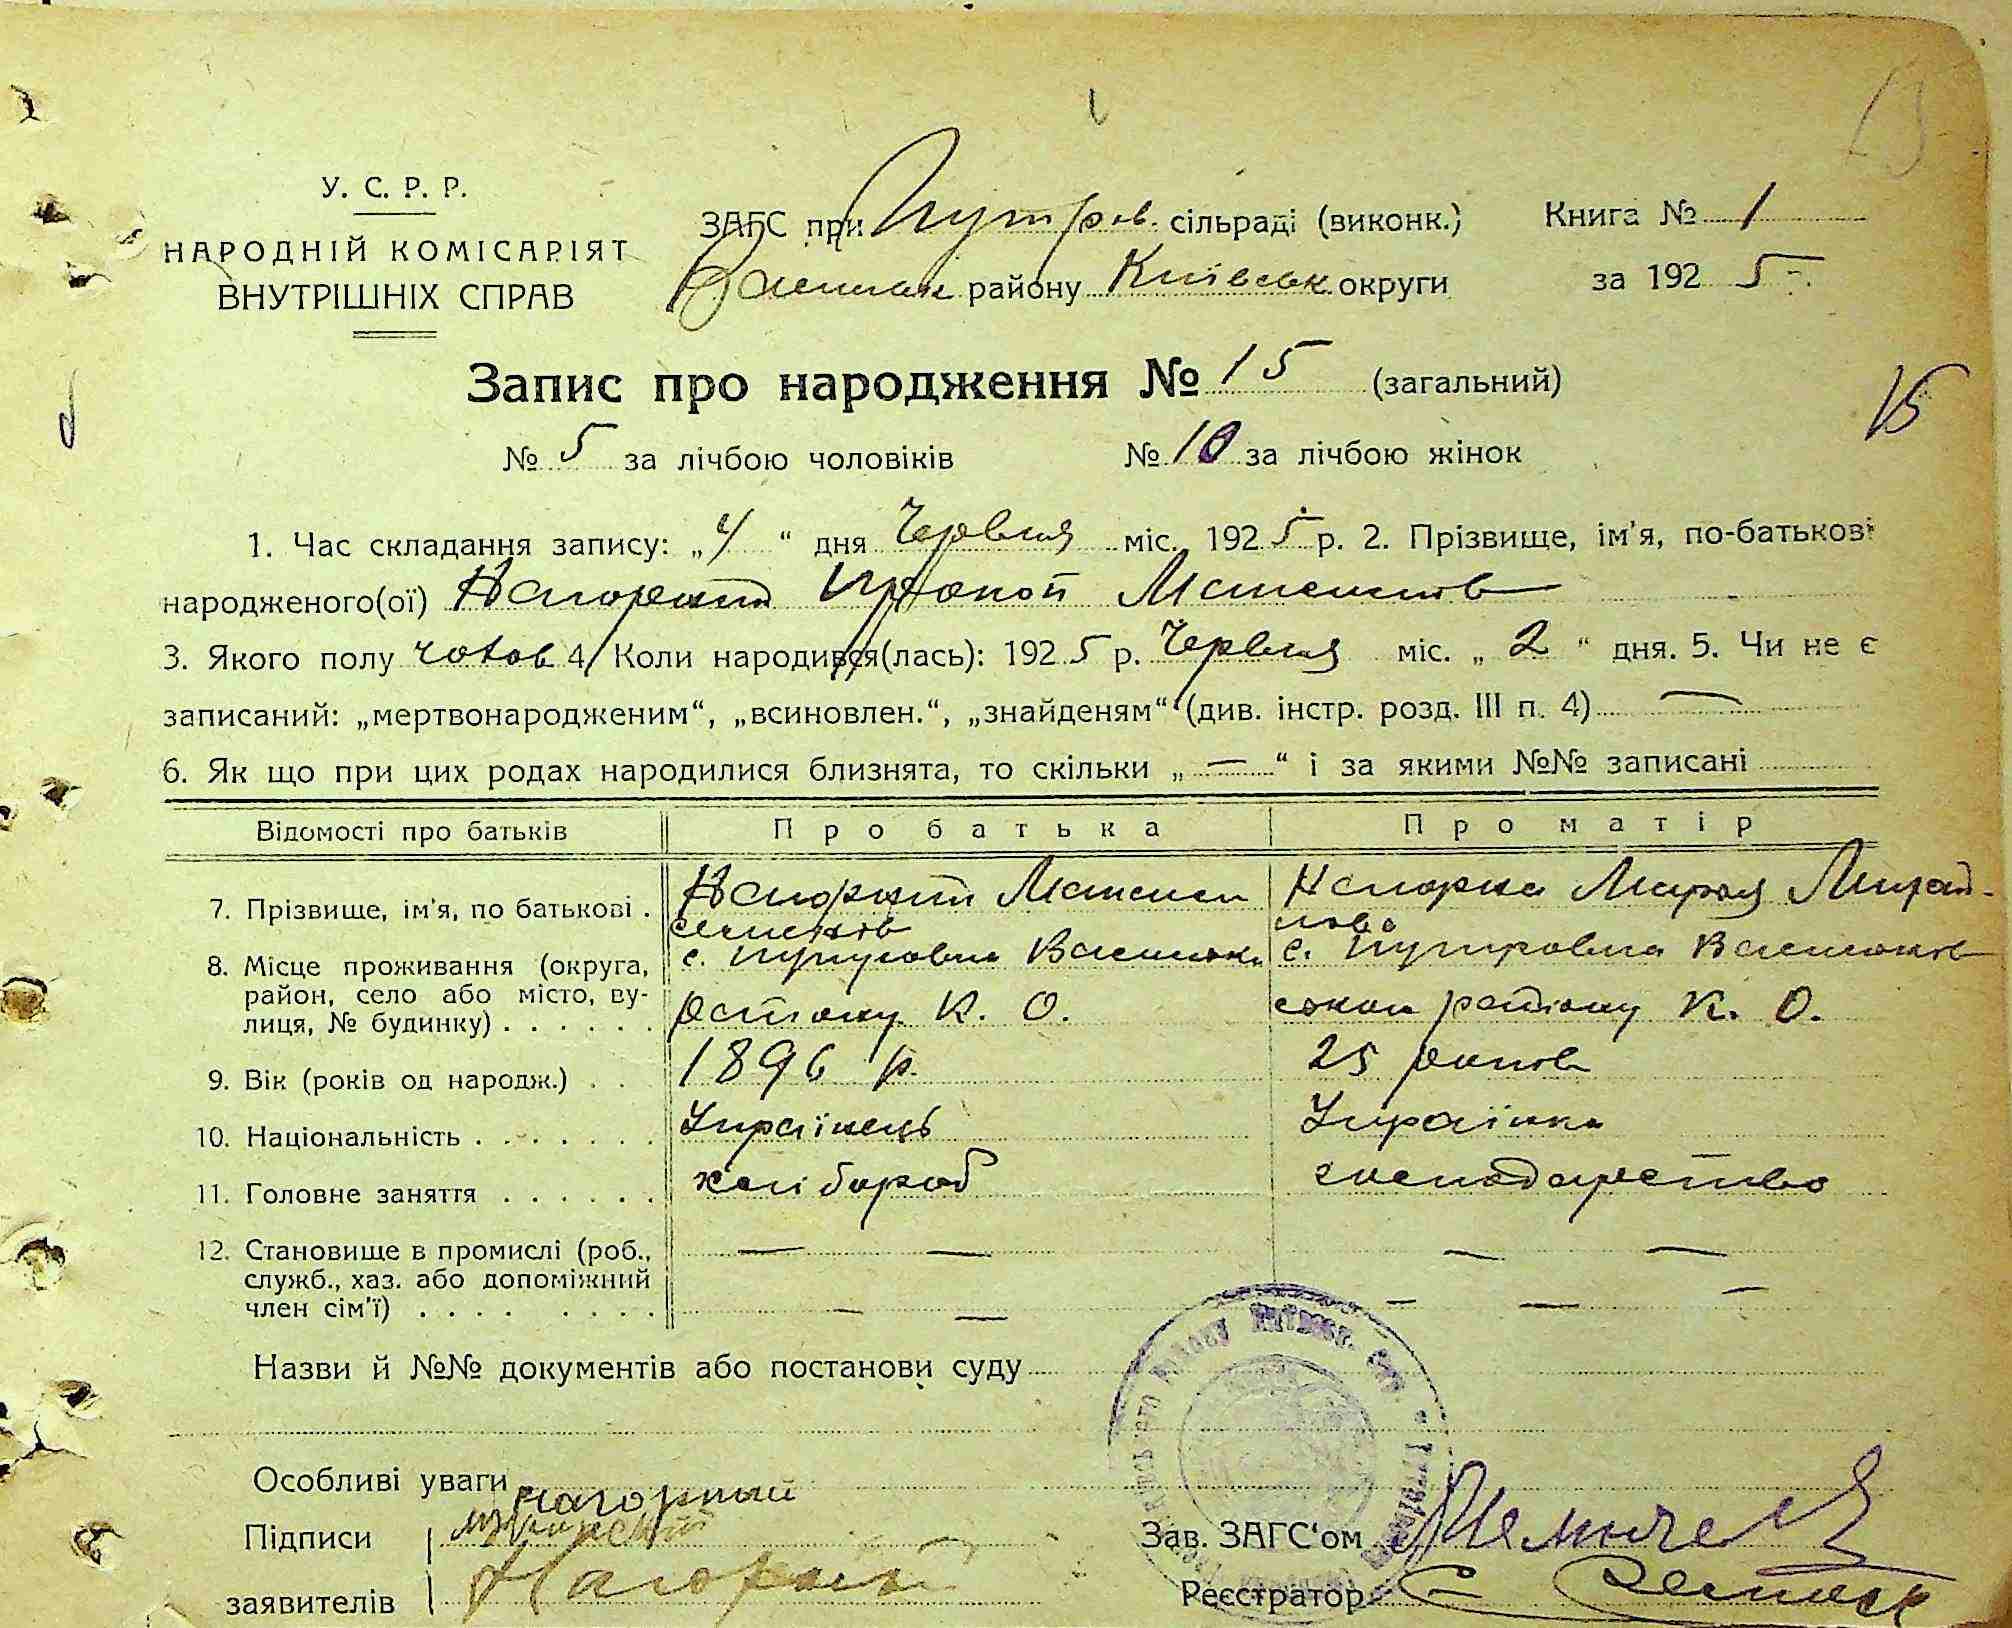 15
У. С. Р. Р.
НАРОДНІЙ КОМІСАРІЯТ
ВНУТРІШНІХ СПРАВ
ЗАГС при Путров. сільраді (виконк.) Книга № 1
району Київськ округи за 192 5
Запис про народження № 15 (загальний)
15
№ 5 за лічбою чоловіків № 10 за лічбою жінок
1. Час складання запису: „4“ дня Червня міс. 1925 р. 2. Прізвище, ім'я, по-батькові
народженого(ої) Нагорний Прокоп
3. Якого полу чолов 4. Коли народився(лась): 1925 р. Червня міс. „2“ дня. 5. Чи не є
записаний: „мертвонародженим“, „всиновлен.“, „знайденям“ (див. інстр. розд. III п. 4) —
6. Як що при цих родах народилися близнята, то скільки „—“ і за якими №№ записані
Відомості про батьків Про батька Про матір
7. Прізвище, ім'я, по батькові . Нагорний Нагорна Мария
8. Місце проживання (округа, с. Путровка с. Путровка
район, село або місто, ву-
лиця, № будинку) . . . . . . К. О. району К. О.
9. Вік (років од народж.) . . 1896 р. 25 років
10. Національність . . . . . . . Українець Українка
11. Головне заняття . . . . . . хлібороб господарство
12. Становище в промислі (роб., — — — —
служб., хаз. або допоміжний
член сім'ї) . . . . . . . . . — — — — —
Назви й №№ документів або постанови суду
Особливі уваги
Нагорный
Підписи
Зав. ЗАГС'ом
заявителів Нагорный
Реєстратор